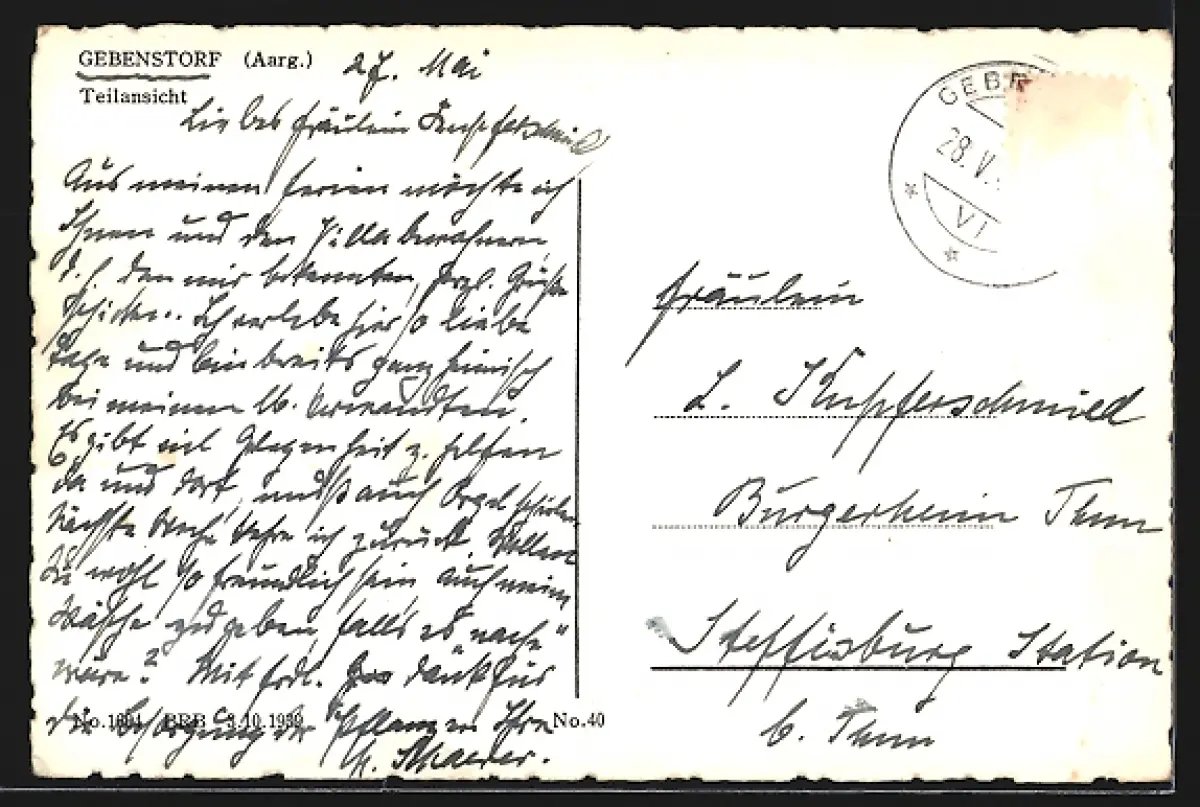 GEBENSTORF (Aarg.) 27. Mai
Teilansicht
Liebes Fräulein Kupferschmied
Aus meinen Ferien möchte ich
Ihnen und den Villabewohnern,
d. h. den mir bekannten, herzl. Grüsse
schicken. Ich erlebe hier so liebe
Tage und bin bereits ganz heimisch
bei meinen lb. Verwandten.
Es gibt viel Gelegenheit z. helfen
da und dort, muß auch Orgel spielen
Nächste Woche kehre ich zurück. Wollen
Sie wohl so freundlich sein auch meine
Wäsche zu geben, falls es "nache"
wäre? Mit frdl. Dank für
die Besorgung der Pflanzen Ihre
No. 1694 BRB 3.10.1939 No. 40
GEB
28. V.
VI
Fräulein
L. Kupferschmied
Bürgerheim Thun
Steffisburg Station
b. Thun